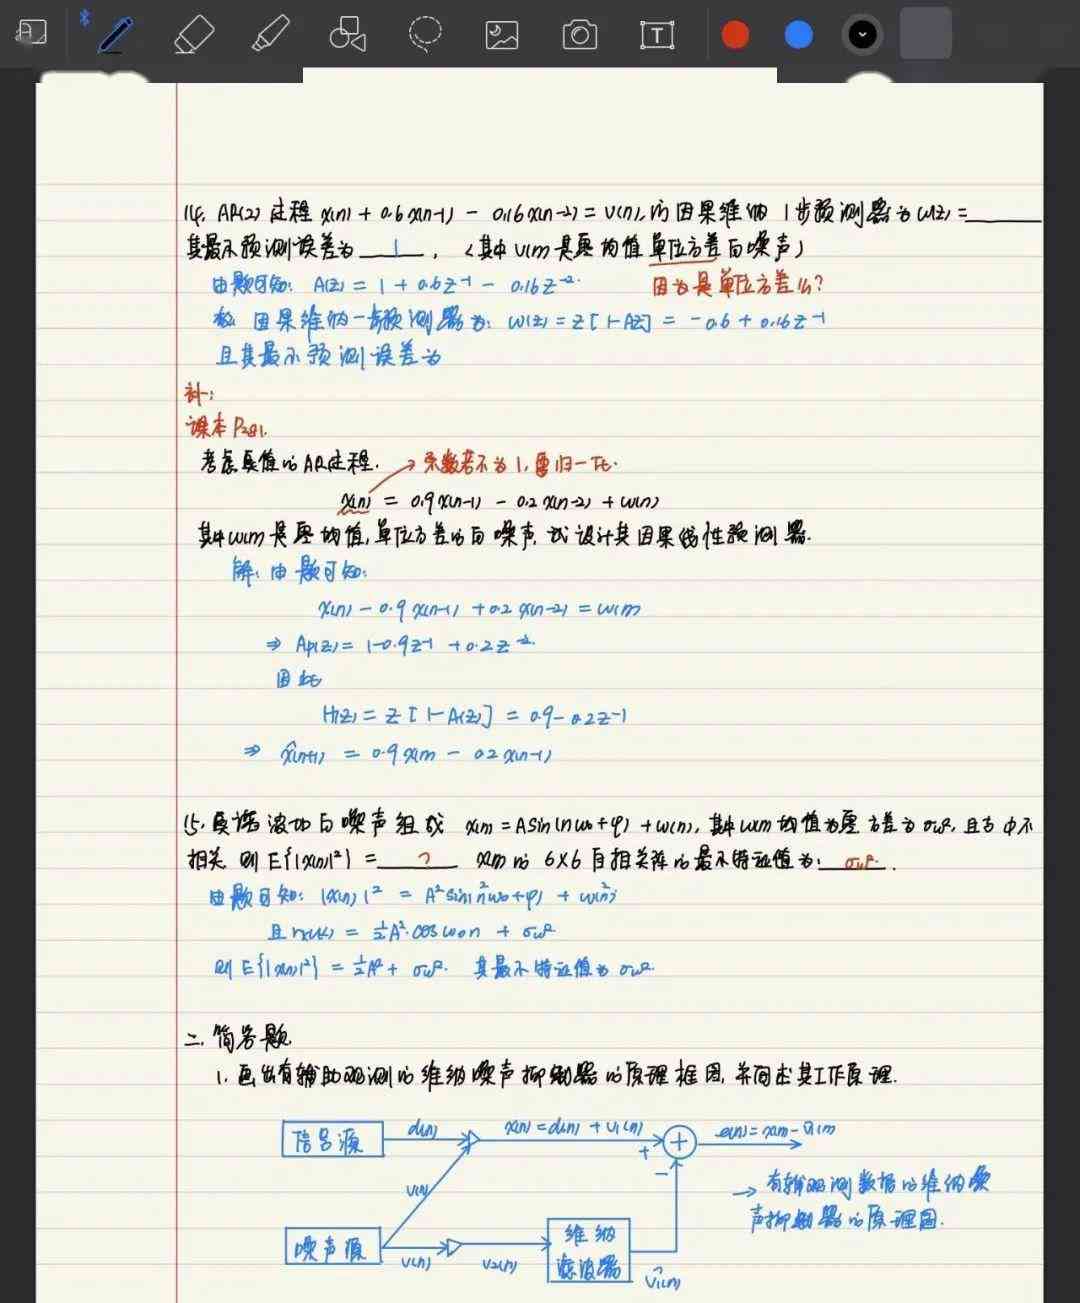 14. AR(2)过程 x(n) + 0.6x(n-1) - 0.16x(n-2) = v(n), 的因果维纳 1步预测器为 W(z) = ______
其最小预测误差为 1 . (其中 v(n) 是零均值单位方差白噪声)
由题可知: A(z) = 1 + 0.6z⁻¹ - 0.16z⁻². 因为是单位方差么?
故 因果维纳一步预测器为: W(z) = z[1-A(z)] = -0.6 + 0.16z⁻¹
且其最小预测误差为
补:
课本P281.
考虑真值的AR过程. → 系数若不为1,要归一化.
x(n) = 0.9x(n-1) - 0.2x(n-2) + w(n)
其中w(n)是零均值,单位方差的白噪声,试设计其因果线性预测器.
解: 由题可知:
x(n) - 0.9x(n-1) + 0.2x(n-2) = w(n)
⇒ Ap(z) = 1-0.9z⁻¹ + 0.2z⁻².
因此
H(z) = z[1-A(z)] = 0.9 - 0.2z⁻¹
⇒ x̂(n+1) = 0.9x(n) - 0.2x(n-1)
15. 真谐波加白噪声组成 x(n) = Asin(nω₀+φ) + w(n), 其中w(n)均值为零 方差为σw², 且与φ不
相关 则E{|x(n)|²} = ? x(n)的 6×6 自相关阵的最小特征值为: σw² .
由题可知: |x(n)|² = A²sin²(nω₀+φ) + w²(n)
且 rx(k) = ½A²·cosω₀n + σw²
则 E{|x(n)|²} = ½A² + σw². 其最小特征值为σw².
二. 简答题
1. 画出有辅助观测的维纳噪声抑制器的原理框图,并简述其工作原理.
信号源 d(n) x(n) = d(n) + v₁(n) + e(n) = x(n) - v̂₁(n)
v(n) -
→ 有辅观测数据的维纳噪
声抑制器的原理图.
噪声源 v(n) v₂(n) 维纳
滤波器 v̂₁(n)